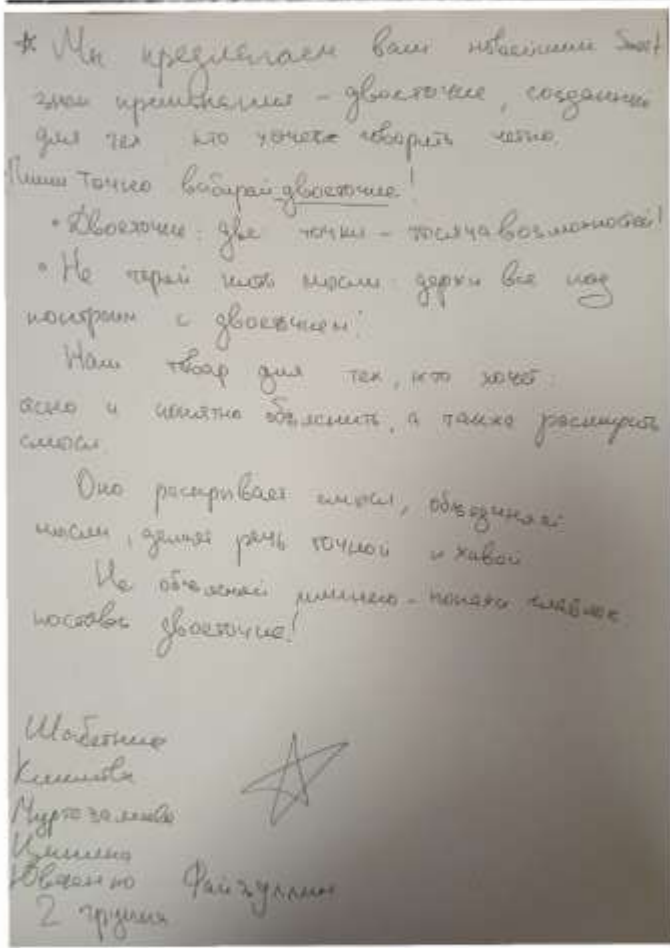 * Мы предлагаем вам новейший Smart
знак препинания - двоеточие, созданный
для тех кто хочет говорить четко.
Пиши точно выбирай двоеточие!
• Двоеточие: две точки - тысяча возможностей!
• Не теряй нить мысли: держи все под
контролем с двоеточием!
Наш товар для тех, кто хочет:
ясно и понятно объяснить, а также расширить
смысл.
Оно раскрывает смысл, объединяет
мысли, делает речь точной и живой
Не объясняй - покажи
поставь двоеточие!
Муртазалиева
Ювченко Файзуллин
2 группа